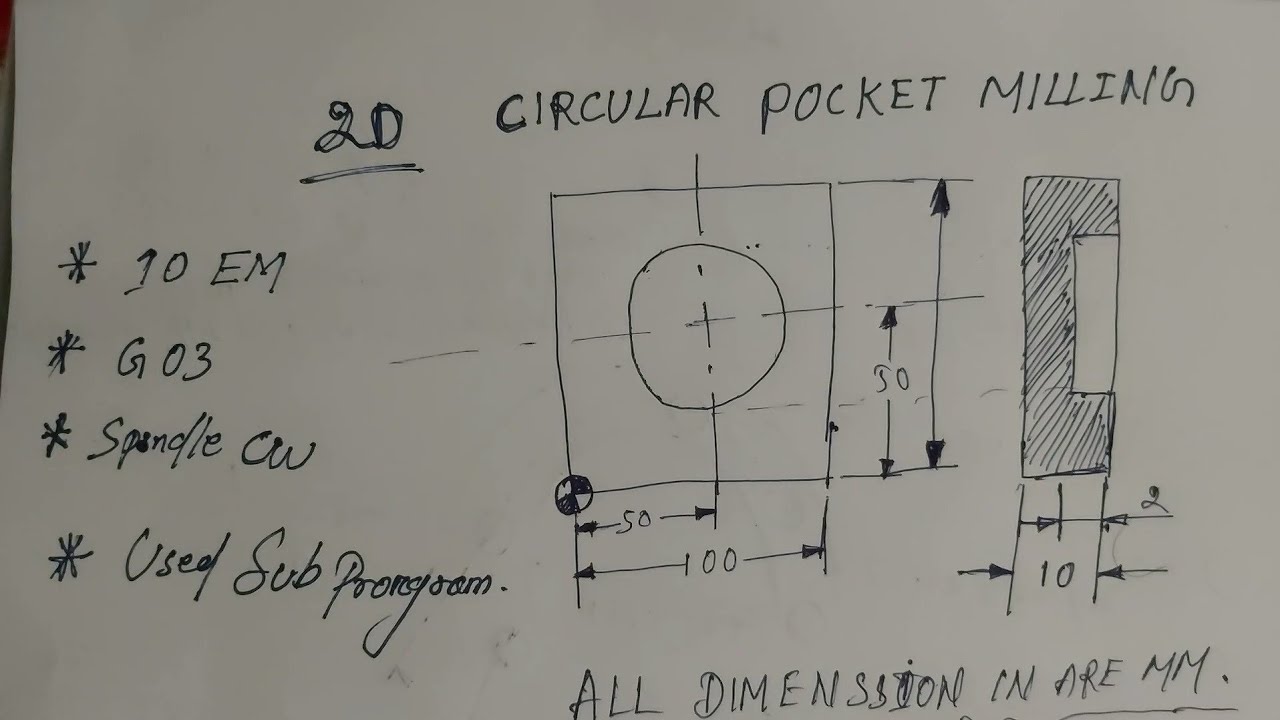 2D CIRCULAR POCKET MILLING
* 10 EM
* G03
* Spindle CW
* Used Sub Prongram.
50
50
100
2
10
ALL DIMENSSION IN ARE MM.